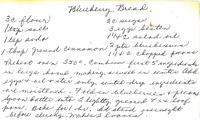 Blueberry Bread.
3c flour 2c sugar
1 tsp salt 3 eggs beaten
1 tsp soda 1 1/4 c salad oil
1 tbsp ground cinnamon 2 pts blueberries
1 1/4 c chopped pecans
Preheat oven 350°. Combine first 5 ingredients
in large bowl making a well in center. Add
eggs & oil & stir only until dry ingredients
are moistened. Fold in blueberries & pecans
Spoon batter into 2 lightly greased loaf
pans. Bake for 1 hr. overnight
before slicing. Makes 2 loaves.